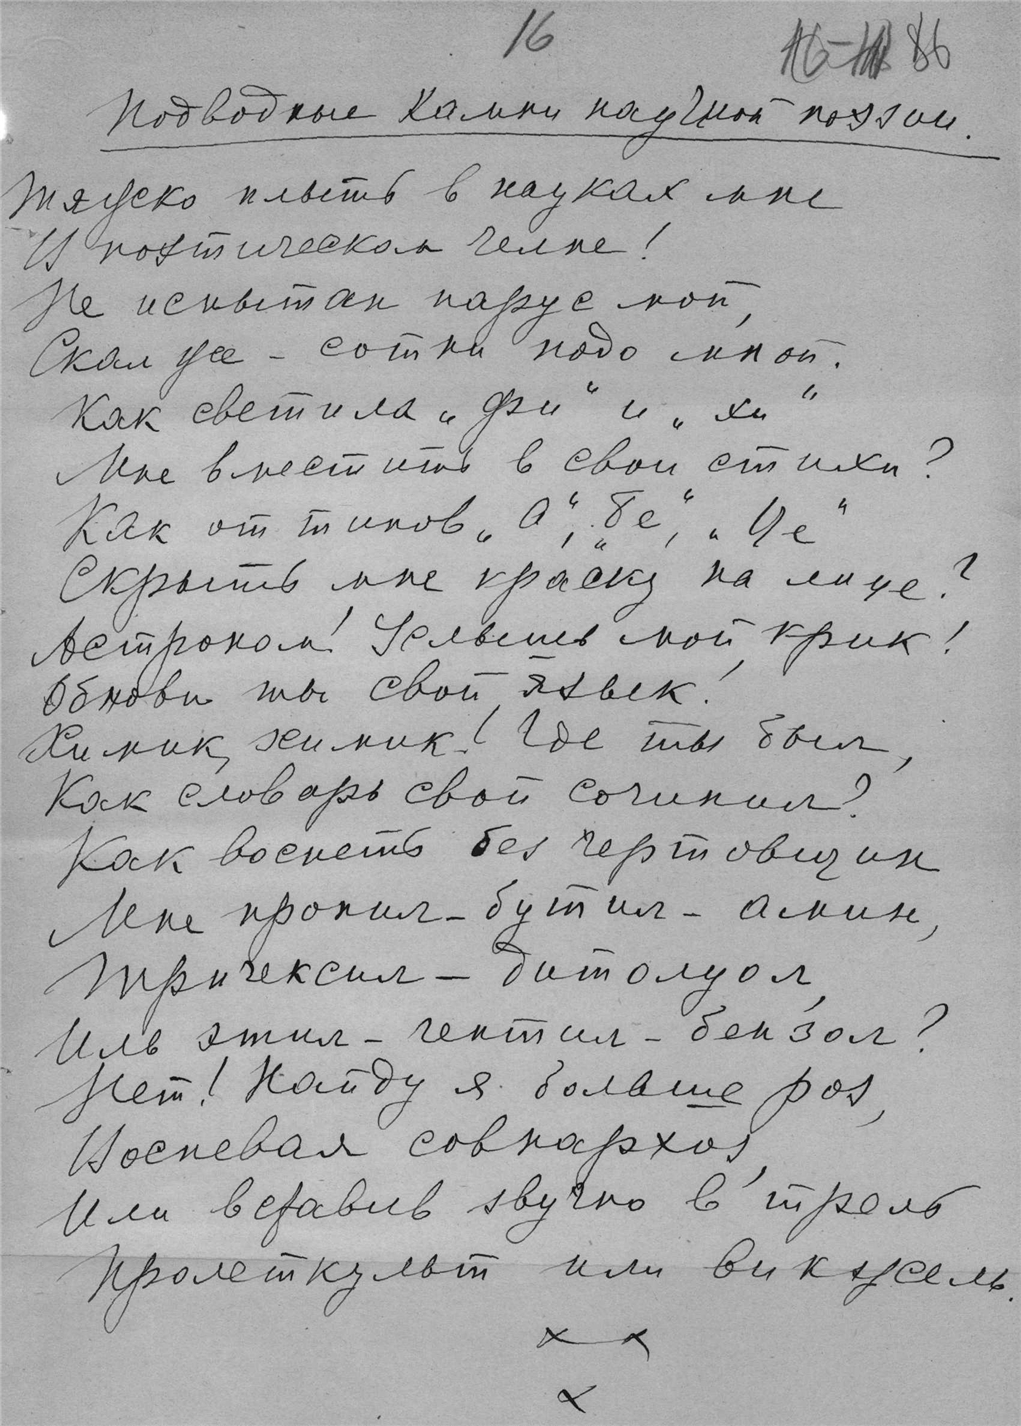 16
86
Подводные камни научной поэзии.
Тяжко плыть в науках мне
В поэтическом челне!
Не испытан парус мой,
Скал же – сотни подо мной.
Как светила „фи“ и „хи“
Мне вместить в свои стихи?
Как от типов „А“, „Бе“, „Це“
Скрыть мне краску на лице?
Астроном! Услышь мой крик!
Обнови ты свой язык!
Химик, химик! Где ты был,
Как словарь свой сочинил?
Как воспеть без чертовщин
Мне пропил-бутил-амин,
Тригексил – дитолуол,
Иль этил-гептил-бензол?
Нет! Найду я больше роз,
Воспевая совнархоз,
Или вставив звучно в трель
Пролеткульт или викжель.